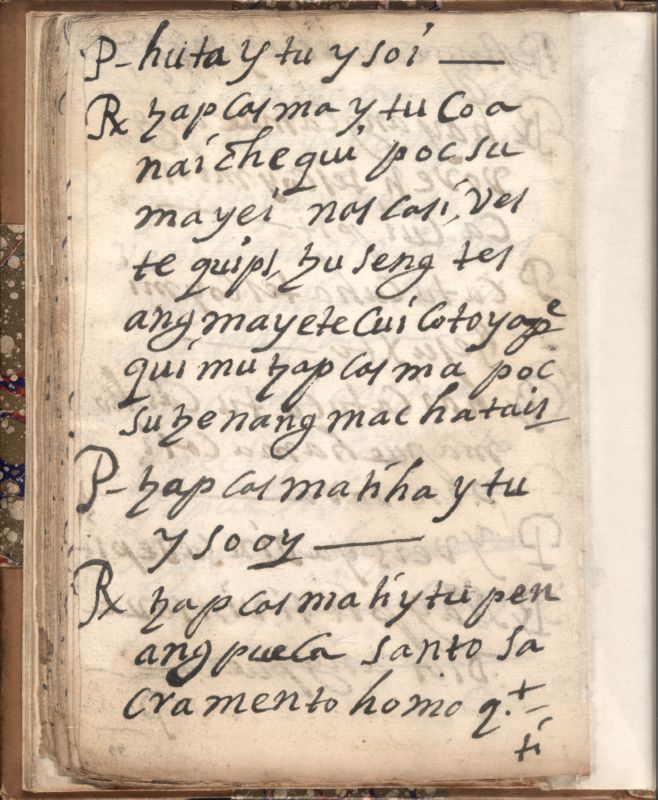 P- huta y tu y soi —
Rx ɧap cosma y tu Co a
nai chequi poc su
mayei nos casi, Ves
te quips, ɧu seng tes
angmayetecuicotoyope
quimuɧapcosma poc
suɧenangmachatais
P- ɧap cosmatiha y tu
y so oy —
Rx ɧap cosmatiytu pen
angpueca santo sa
cramento homo q.
ti